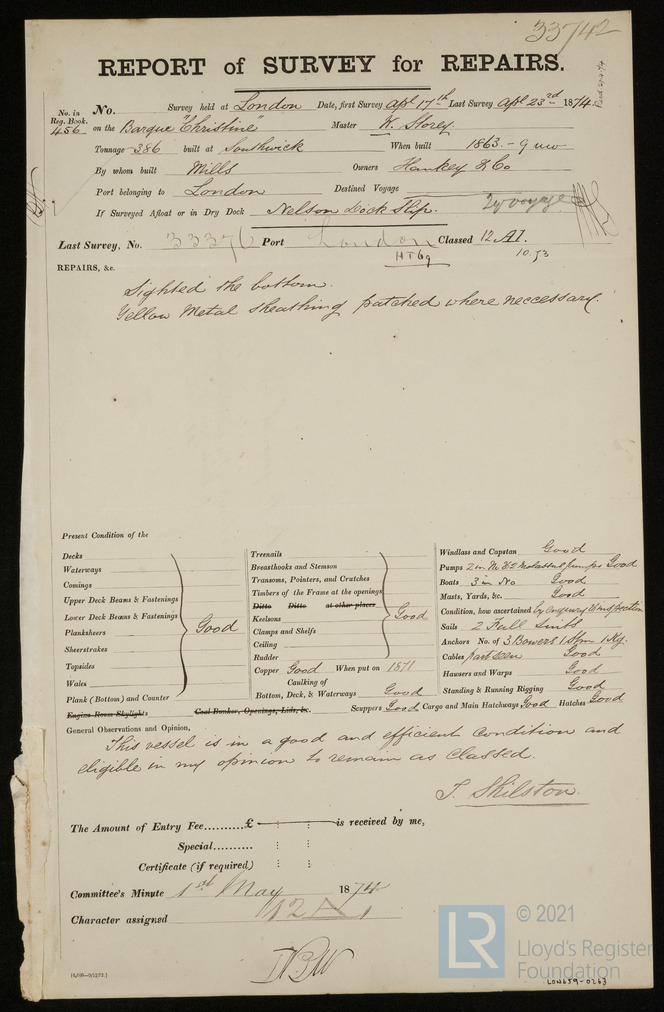 33742
REPORT of SURVEY for REPAIRS.
No. in Reg. Book. No. Survey held at London Date, first Survey Apl 17th Last Survey Apl 23rd 1874
456 on the Barque "Christine" Master W. Storey.
Tonnage 386 built at Southwick When built 1863. - 9
By whom built Mills Owners Hankey & Co
Port belonging to London Destined Voyage
If Surveyed Afloat or in Dry Dock Nelson Dock Slip.
Last Survey, No. 33376 Port London Classed 12 A1.
HT69 10.73
REPAIRS, &c.
Sighted the bottom.
Yellow Metal sheathing patched where neccessary.
Present Condition of the
Decks
Waterways
Comings
Upper Deck Beams & Fastenings
Lower Deck Beams & Fastenings
Planksheers Good
Sheerstrakes
Topsides
Wales
Plank (Bottom) and Counter
Engine Room Skylights Coal Bunker, Openings, Lids, &c.
Treenails
Breasthooks and Stemson
Transoms, Pointers, and Crutches
Timbers of the Frame at the openings
Ditto Ditto at other places
Keelsons Good
Clamps and Shelfs
Ceiling
Rudder
Copper Good When put on 1871
Caulking of
Bottom, Deck, & Waterways Good
Scuppers Good Cargo and Main Hatchways Good Hatches Good
Windlass and Capstan Good
Pumps 2 in No. & 2 Molasses pumps Good
Boats 3 in No Good
Masts, Yards, &c. Good
Condition, how ascertained by enquiry & inspection
Sails 2 Full Suits
Anchors No. of 3 Bowers 1 Strm 1 Kg.
Cables part seen Good
Hawsers and Warps Good
Standing & Running Rigging Good
General Observations and Opinion,
This vessel is in a good and efficient condition and
eligible in my opinion to remain as Classed.
J. Skilston.
The Amount of Entry Fee..........£ is received by me,
Special..........
Certificate (if required)
Committee's Minute 1st May 1874
Character assigned 12 A1
© 2021
LR Lloyd's Register
Foundation
LON659-0263